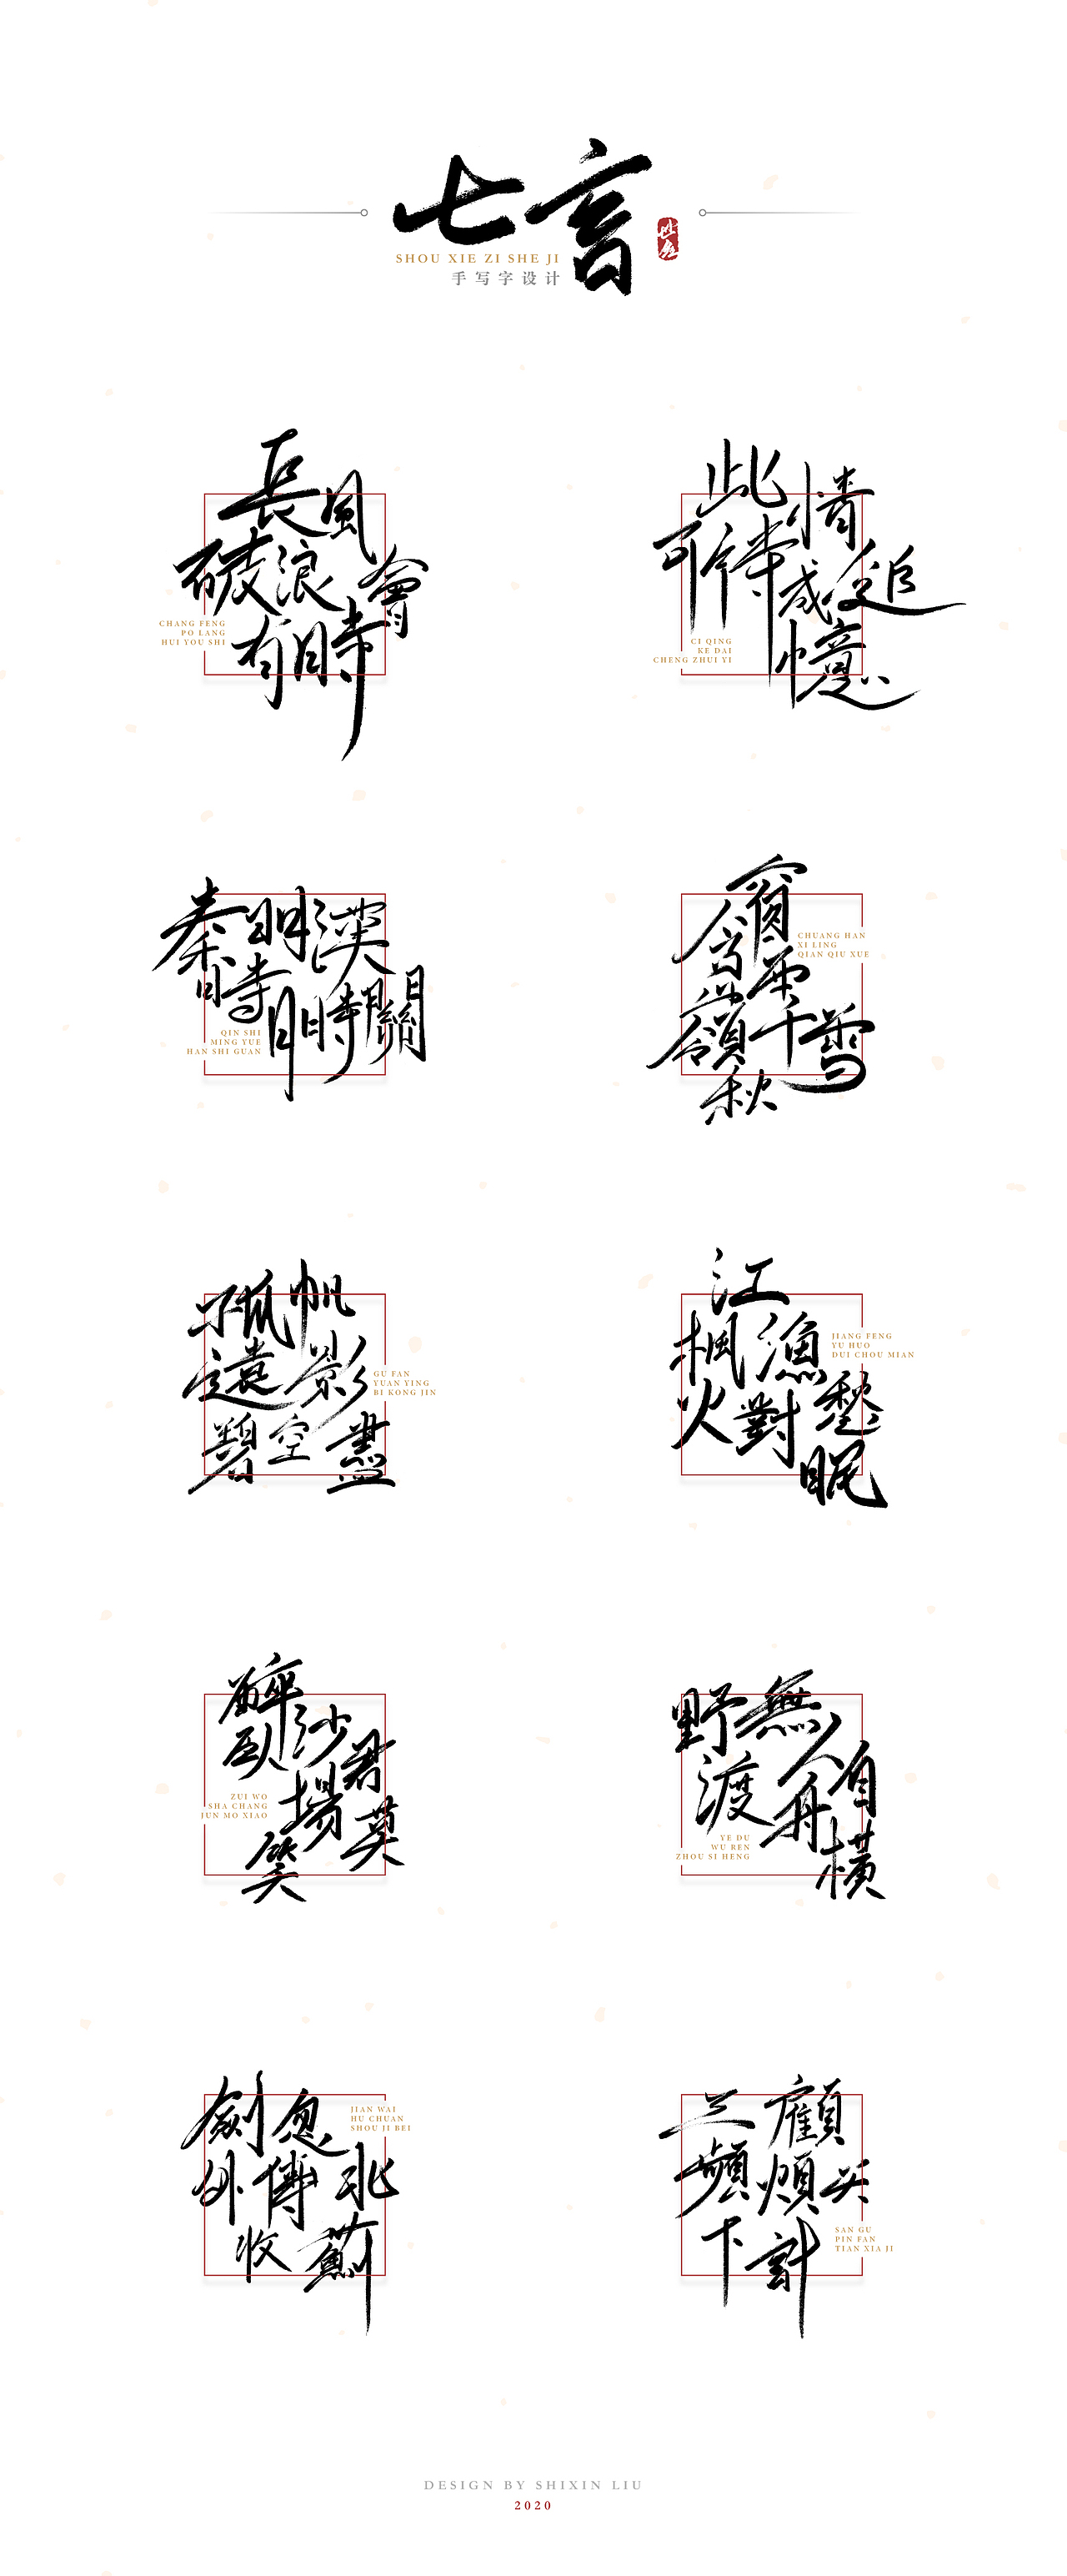 七言
SHOU XIE ZI SHE JI
手写字设计
長風破浪會有時
CHANG FENG
PO LANG
HUI YOU SHI
此情可待成追憶
CI QING
KE DAI
CHENG ZHUI YI
秦時明月漢時關
QIN SHI
MING YUE
HAN SHI GUAN
窗含西嶺千秋雪
CHUANG HAN
XI LING
QIAN QIU XUE
孤帆遠影碧空盡
GU FAN
YUAN YING
BI KONG JIN
江楓漁火對愁眠
JIANG FENG
YU HUO
DUI CHOU MIAN
醉臥沙場君莫笑
ZUI WO
SHA CHANG
JUN MO XIAO
野渡無人舟自橫
YE DU
WU REN
ZHOU SI HENG
劍外忽傳收薊北
JIAN WAI
HU CHUAN
SHOU JI BEI
三顧頻煩天下計
SAN GU
PIN FAN
TIAN XIA JI
DESIGN BY SHIXIN LIU
2020